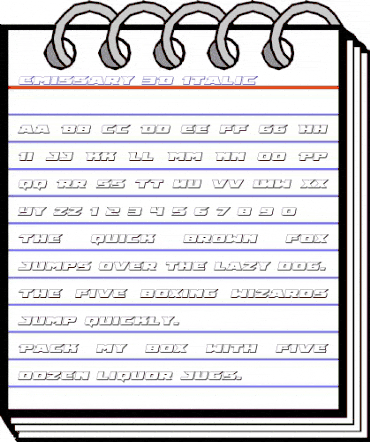 EMISSARY 3D ITALIC
AA BB CC DD EE FF GG HH
II JJ KK LL MM NN OO PP
QQ RR SS TT UU VV WW XX
YY ZZ 1 2 3 4 5 6 7 8 9 0
THE QUICK BROWN FOX
JUMPS OVER THE LAZY DOG.
THE FIVE BOXING WIZARDS
JUMP QUICKLY.
PACK MY BOX WITH FIVE
DOZEN LIQUOR JUGS.